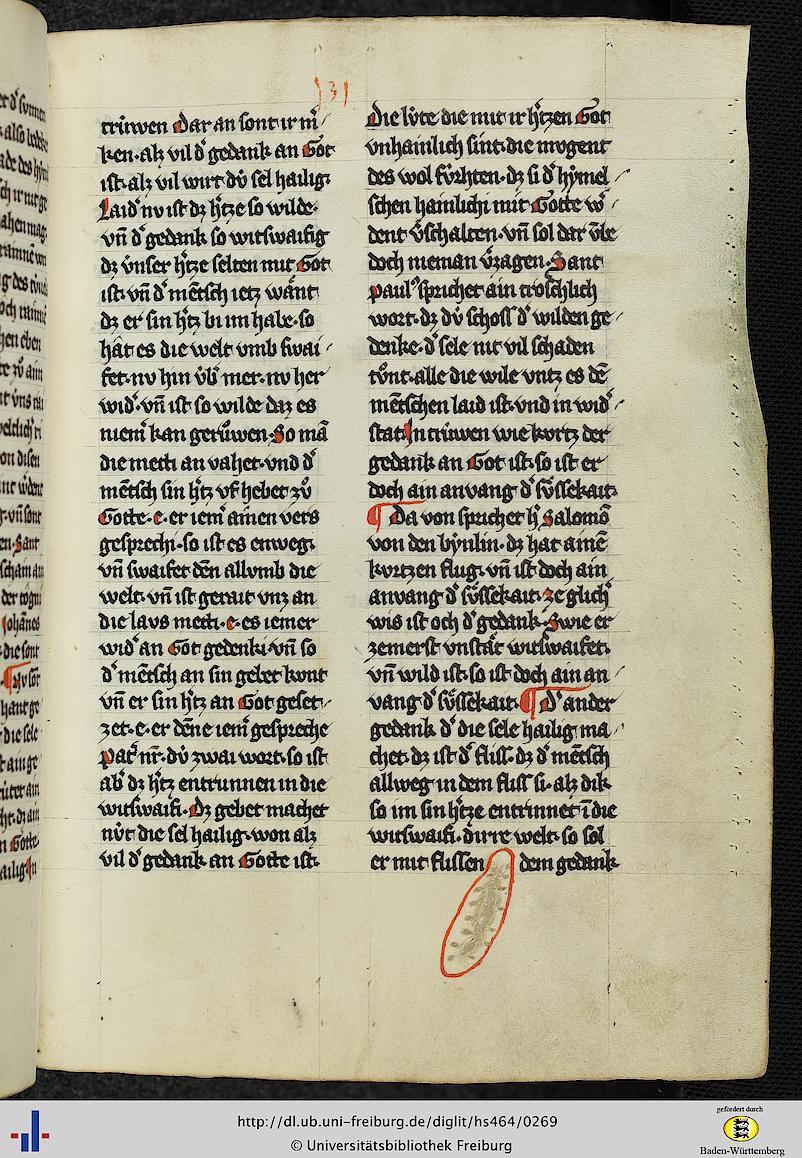 131
trúwen Dar an sont ir m̄
ken. alz vil dʼ gedank an Got
ist. alz vil wirt dv́ sel hailig.
Laid nv ist dz hʼtze so wilde.
vn̄ dʼ gedank so witswaifig
dz v́nser hʼtze selten mit Got
ist. vn̄ dʼ mētsch ietz wānt
dz er sin hʼtz bi im habe. so
hât es die welt vmb swai
fet. nv hin v́bʼ mer. nv her
widʼ. vn̄ ist so wilde daz es
niemʼ kan gerůwen. So mā
die mecti an vahet. vnd dʼ
mētsch sin hʼtz vf hebet zů
Gotte. e. er iemʼ ainen vers
gesprechi. so ist es enweg.
vn̄ swaifet dēn allvmb die
welt. vn̄ ist gerait vnz an
die lavs mecti. e. es iemer
widʼ an Got gedenki. vn̄ so
dʼ mētsch an sin gebet kvnt
vn̄ er sin hʼtz an Got geset
zet. e. er dēne iemʼ gespreche
patʼ nr̄. dv́ zwai wort. so ist
abʼ dz hʼtz entrunnen in die
witswaifi. Dz gebet machet
nv́t die sel hailig. won alz
vil dʼ gedank an Gotte ist.
Die lv́te die mit ir hʼtzen Got
vnhainlich sint. die mvgent
des wol fv́rhten. dz si dʼ hymel
schen hainlichi mit Gotte wʼ
dent v́schalten. vn̄ sol dar v́be
doch nieman v́zagen. Sant
paulꝰ sprichet ain troschlich
wort. dz dv́ schoss dʼ wilden ge
denke. dʼ sele nit vil schaden
tv̊nt. alle die wile vntz es dē
mētschen laid ist. vnd in widʼ
stat. In trúwen wie kvrtz der
gedank an Got ist. so ist er
doch ain anvang dʼ sv́ssekait.
¶ Da von sprichet hʼ Salomō
von den bynlin. dz hat ainē
kvrtzen flug. vn̄ ist doch ain
anvang dʼ sv́ssekait. ze glichʼ
wis ist och dʼ gedank. Swie er
zemerst vnstāt witswaifet.
vn̄ wild ist. so ist doch ain an
vang dʼ sv́ssekait. ¶ Dʼ ander
gedank dʼ die sele hailig ma
chet. dz ist dʼ fliss. dz dʼ mētsch
allweg in dem fliss si. alz dik
so im sin hʼtze entrinnet ī die
witswaifi. dirre welt. so sol
er mit flissen dem gedank
http://dl.ub.uni-freiburg.de/diglit/hs464/0269
© Universitätsbibliothek Freiburg
gefördert durch
Baden-Württemberg